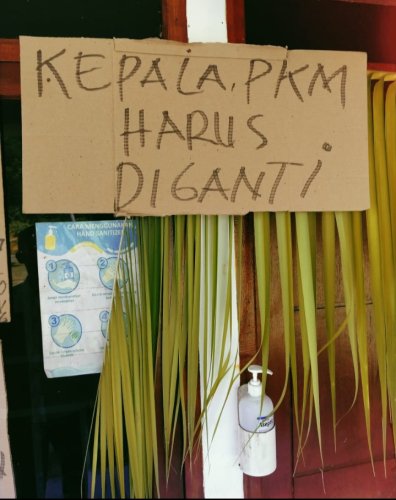 KEPALA. PKM
HARUS
DIGANTI.
CARA MENGGUNAKAN
HAND SANITIZER
1
2
3
4